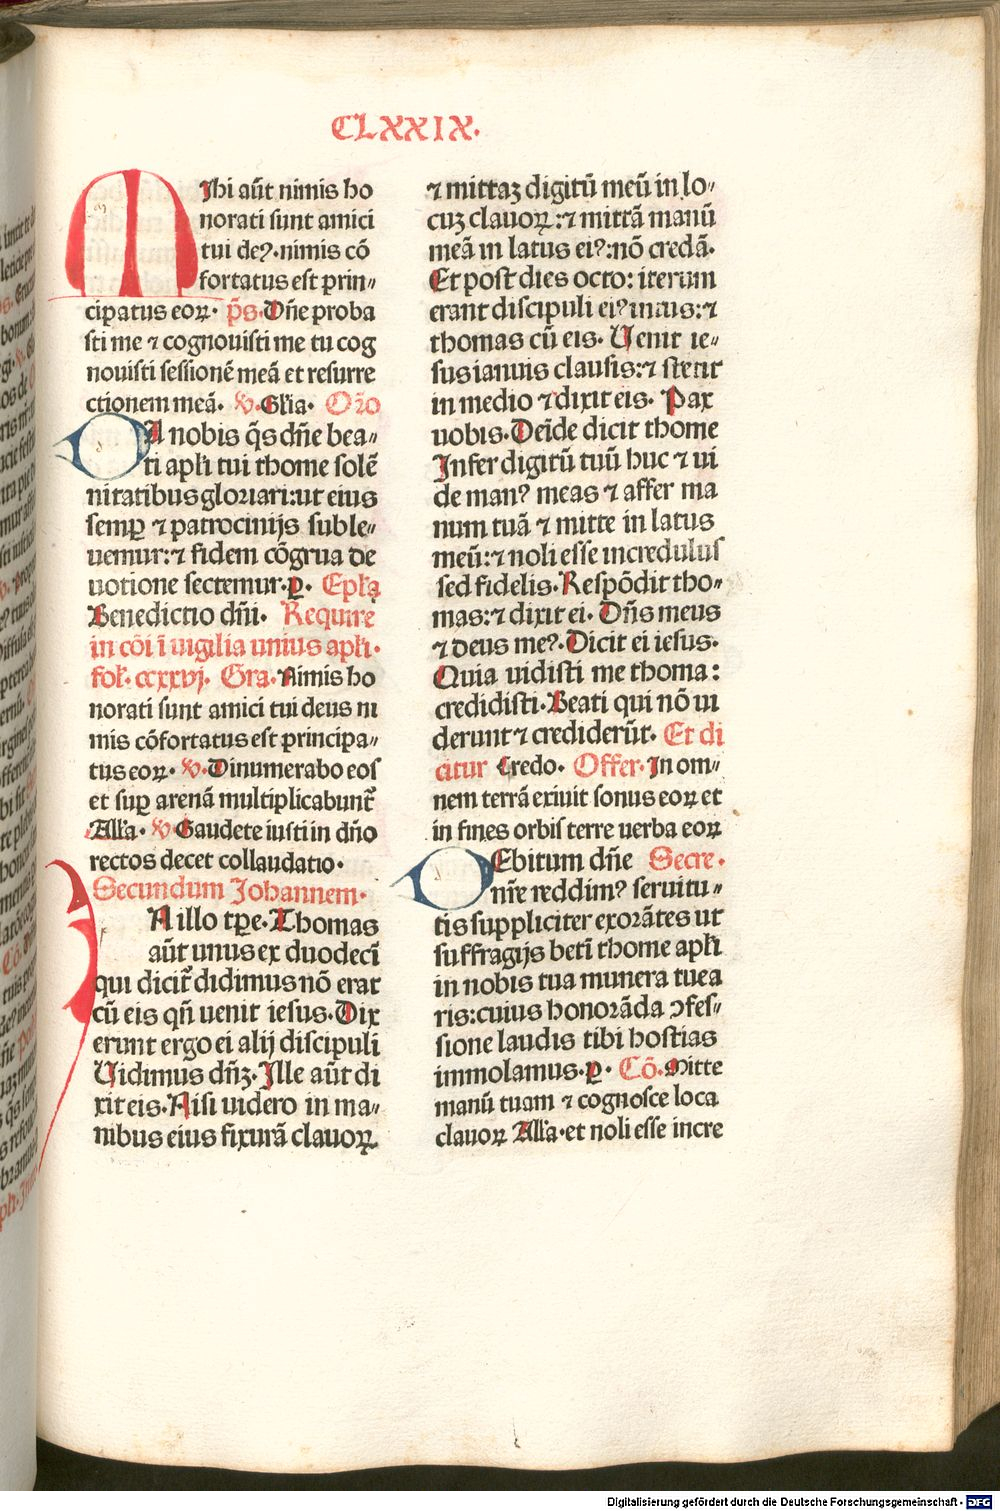 CLXXIX.
Mihi aūt nimis ho
norati sunt amici
tui deꝰ.nimis cō
fortatus est prin〃
cipatus eoꝝ. p̄s. Dñe proba
sti me ⁊ cognouisti me tu cog
nouisti sessionē meā et resurre
ctionem meā. ꝟ. Gl̄ia. Or̄o
DA nobis q̄s dñe bea〃
ti apl̄i tui thome solē
nitatibus gloriari:ut eius
semꝑ ⁊ patrocinijs suble〃
uemur:⁊ fidem cōgrua de
uotione sectemur.ꝑ. Epl̄a
Benedictio dñi. Require
in cōi ī uigilia unius apl̄i.
fol̄. ccxxvj. Gra. Nimis ho
norati sunt amici tui deus ni
mis cōfortatus est principa〃
tus eoꝝ. ꝟ. Dinumerabo eos
et suꝑ arenā multiplicabunt᷑
All̄a. ꝟ. Gaudete iusti in dño
rectos decet collaudatio.
Secundum Johannem.
IN illo tꝑe. Thomas
aūt unus ex duodecī
qui dicit᷑ didimus nō erat
cū eis qñ uenit iesus. Dix
erunt ergo ei alij discipuli
Uidimus dñꝫ. Ille aūt di
xit eis. Nisi uidero in ma〃
nibus eius fixurā clauoꝝ
⁊ mittaꝫ digitū meū in lo〃
cuꝫ clauoꝝ:⁊ mittā manū
meā in latus eiꝰ:nō credā.
Et post dies octo: iterum
erant discipuli eiꝰ intus:⁊
thomas cū eis. Uenit ie〃
sus ianuis clausis:⁊ stetit
in medio ⁊ dixit eis. Pax
uobis. Deīde dicit thome
Infer digitū tuū huc ⁊ ui
de manꝰ meas ⁊ affer ma
num tuā ⁊ mitte in latus
meū:⁊ noli esse incredulus
sed fidelis. Respōdit tho〃
mas:⁊ dixit ei. Dñs meus
⁊ deus meꝰ. Dicit ei iesus.
Quia uidisti me thoma:
credidisti. Beati qui nō ui
derunt ⁊ crediderūt. Et di
citur Credo. Offer. In om〃
nem terrā exiuit sonus eoꝝ et
in fines orbis terre uerba eoꝝ
DEbitum dñe Secre.
nr̄e reddimꝰ seruitu〃
tis suppliciter exorātes ut
suffragijs bet̄i thome apl̄i
in nobis tua munera tuea
ris:cuius honorāda ↄfes〃
sione laudis tibi hostias
immolamus.ꝑ. Cō. Mitte
manū tuam ⁊ cognosce loca
clauoꝝ All̄a.et noli esse incre
Digitalisierung gefördert durch die Deutsche Forschungsgemeinschaft - DFG